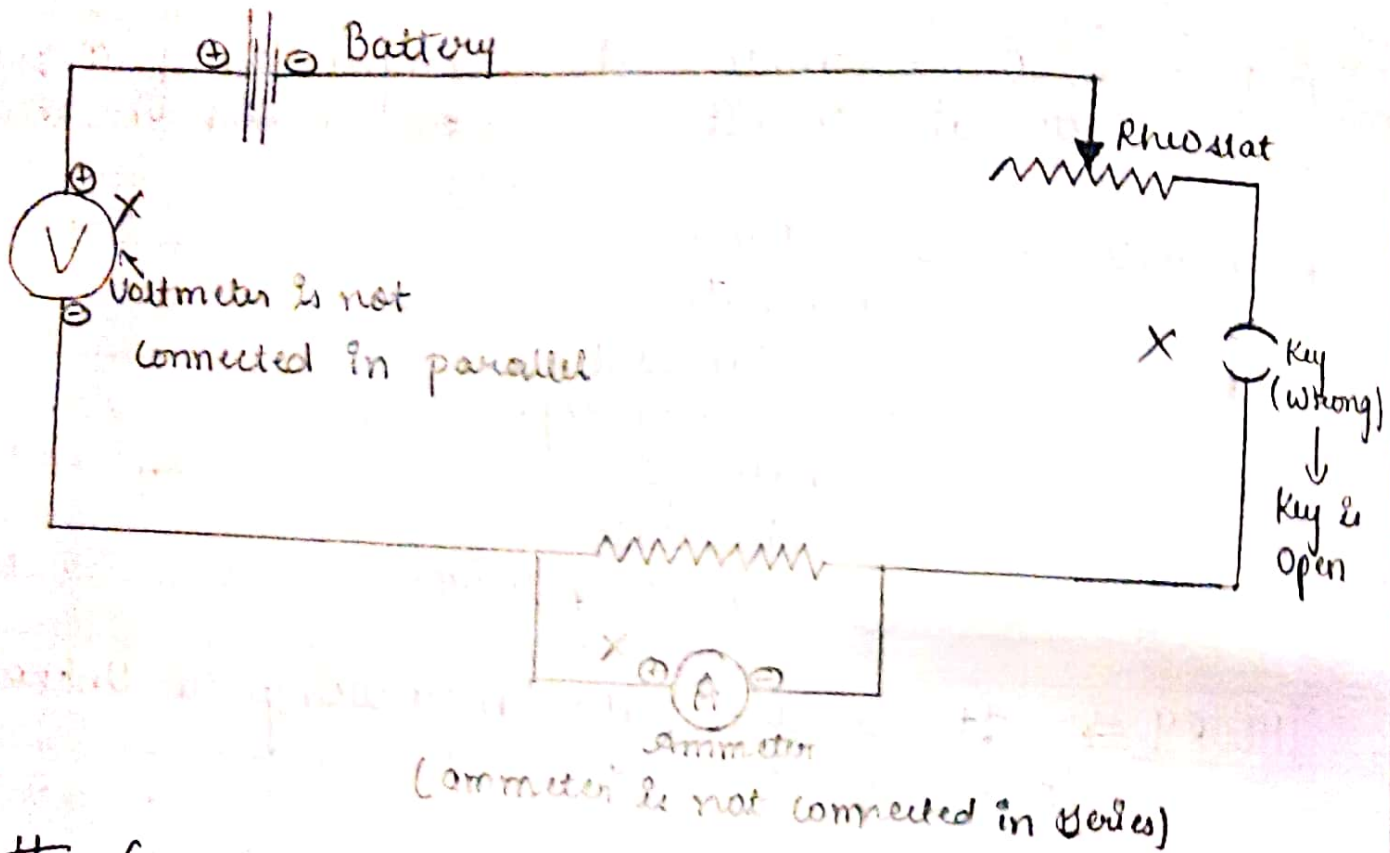 ⊕ ⊖ Battery
Rheostat
⊕ X
V
Voltmeter is not
⊖
connected in parallel
X Key
(Wrong)
↓
Key is
Open
X ⊕ A ⊖
Ammeter
(ammeter is not connected in series)